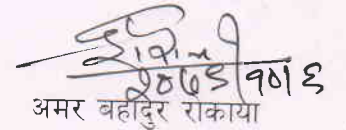 २०७६।१०।६
अमर बहादुर रोकाया